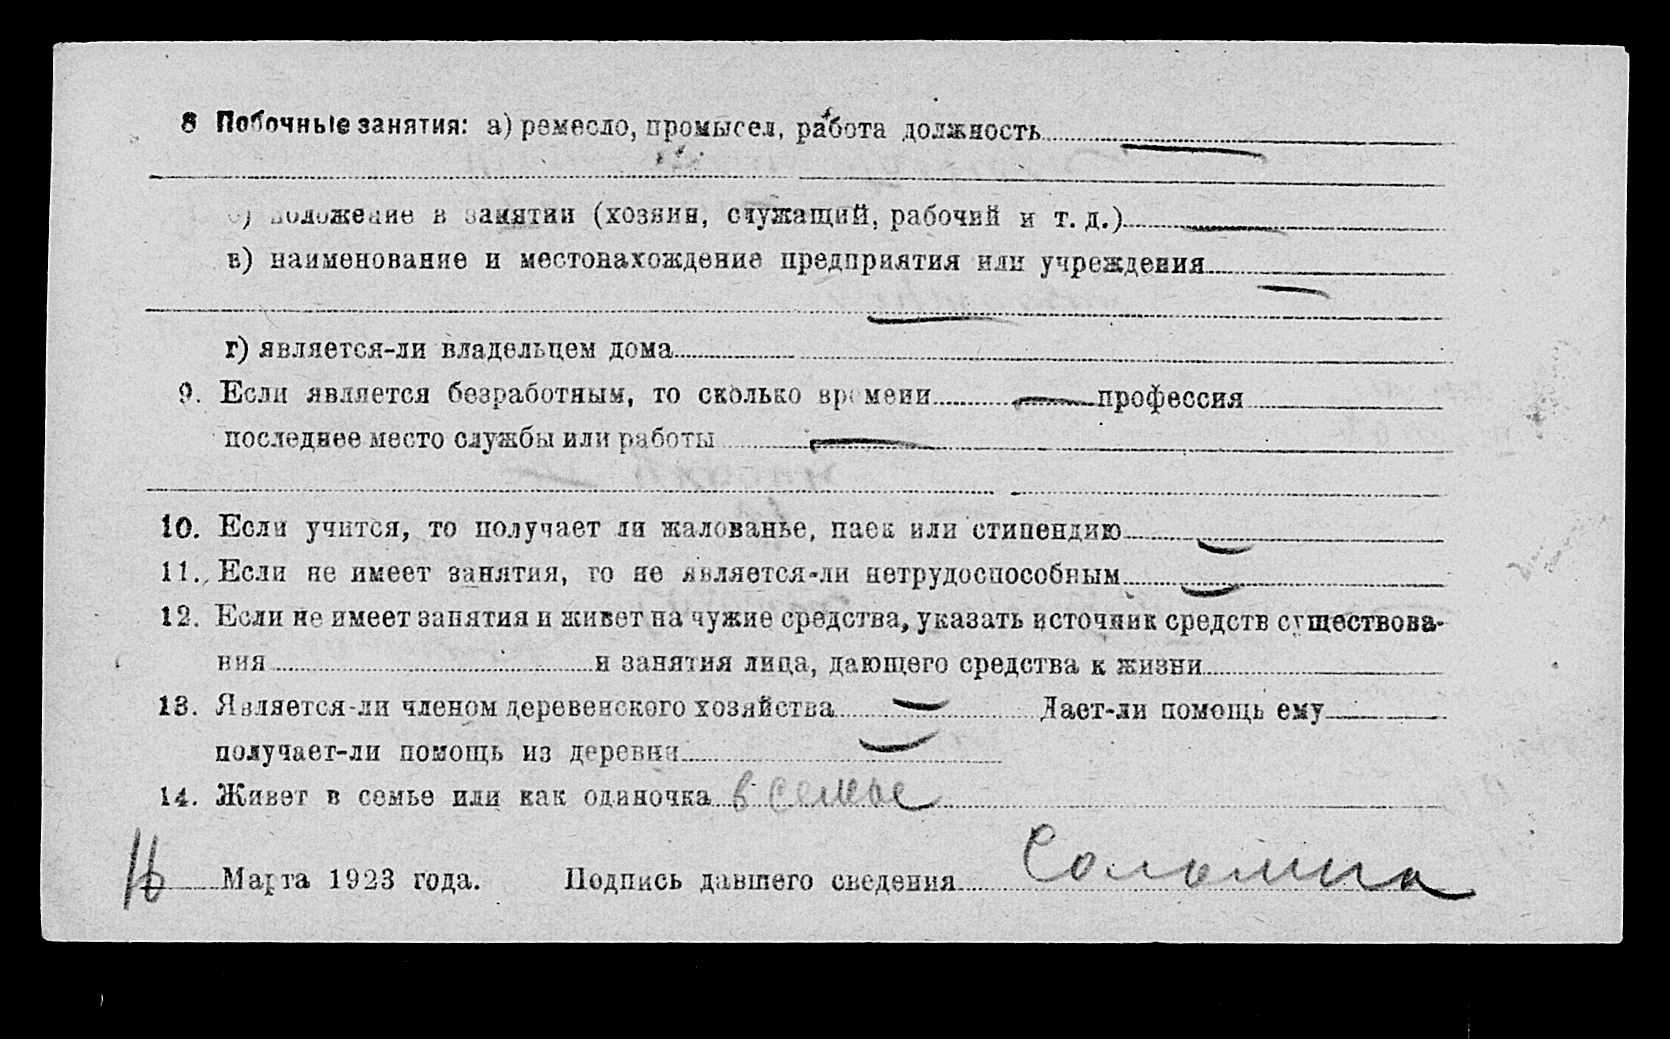 8 Побочные занятия: а) ремесло, промысел, работа должность —
б) положение в занятии (хозяин, служащий, рабочий и т. д.) —
в) наименование и местонахождение предприятия или учреждения —
—
г) является-ли владельцем дома
9. Если является безработным, то сколько времени — профессия
последнее место службы или работы —
10. Если учится, то получает ли жалованье, паек или стипендию —
11. Если не имеет занятия, то не является-ли нетрудоспособным —
12. Если не имеет занятия и живет на чужие средства, указать источник средств существова-
ния и занятия лица, дающего средства к жизни
13. Является-ли членом деревенского хозяйства — Дает-ли помощь ему
получает-ли помощь из деревни —
14. Живет в семье или как одиночка в семье
16 Марта 1923 года. Подпись давшего сведения Соломина